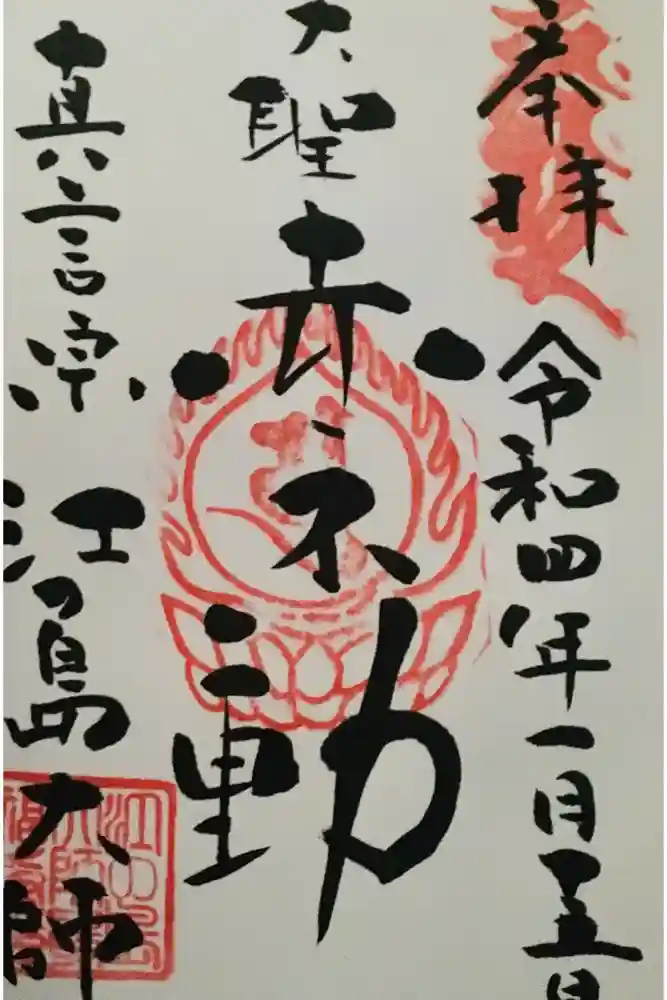 奉拝
令和四年一月五日
大聖
赤不動
真言宗
江の島大師